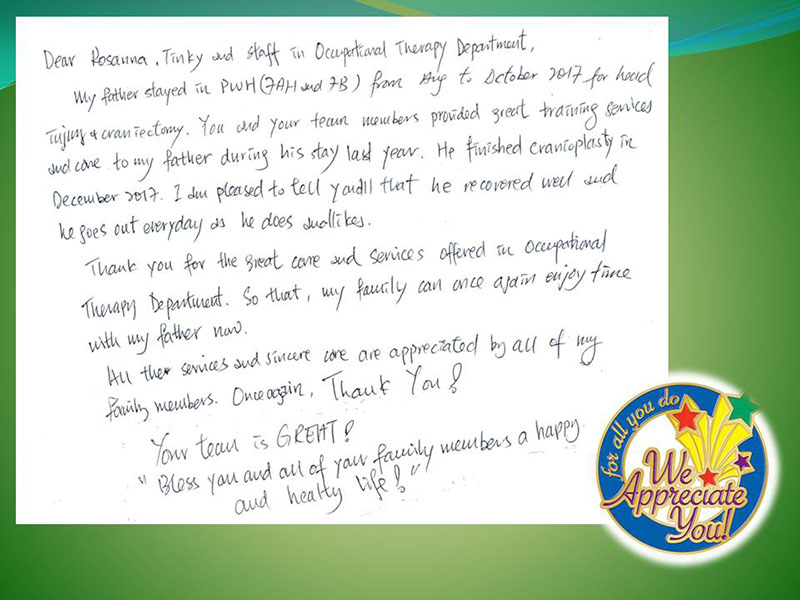 Dear Rosanna, Tinky and staff in Occupational Therapy Department,
My father stayed in PWH (7AH and 7B) from Aug to October 2017 for head
injury & craniectomy. You and your team members provided great training services
and care to my father during his stay last year. He finished cranioplasty in
December 2017. I am pleased to tell you all that he recovered well and
he goes out everyday as he does and likes.
Thank you for the great care and services offered in Occupational
Therapy Department. So that, my family can once again enjoy time
with my father now.
All the services and sincere care are appreciated by all of my
family members. Once again, Thank You!
Your team is GREAT!
"Bless you and all of your family members a happy
and healty life!"
for all you do
We
Appreciate
You!